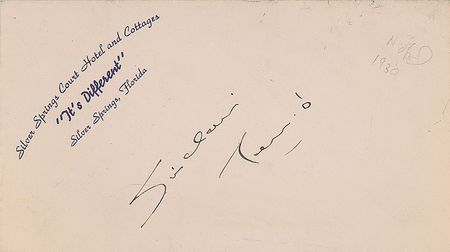 Silver Springs Court Hotel and Cottages
"It's Different"
Silver Springs, Florida
Sinclair
Lewis